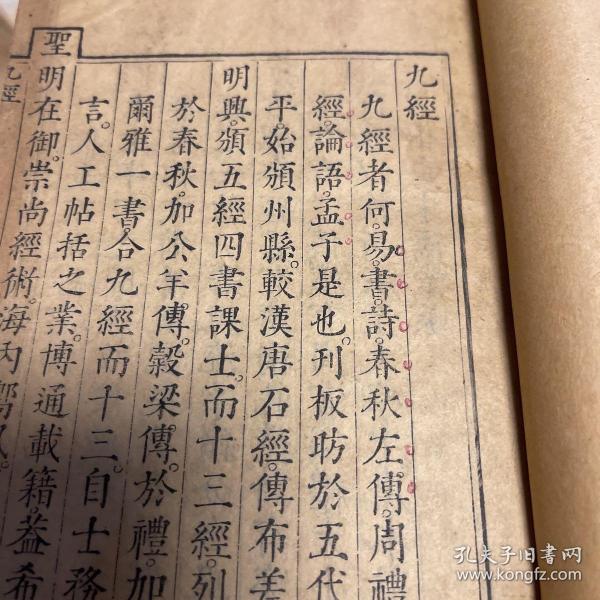 九經
九經者何。易。書。詩。春秋左傳。周禮
經。論語。孟子是也。刊板昉於五代
平始頒州縣。較漢唐石經。傳布差
明興。頒五經四書課士。而十三經。列
於春秋。加公羊傳。穀梁傳。於禮。加
爾雅一書。合九經而十三。自士務
言。人工帖括之業。博通載籍。葢希
聖
明在御。崇尚經術。海內
九經
孔夫子旧书网
www.kongfz.com